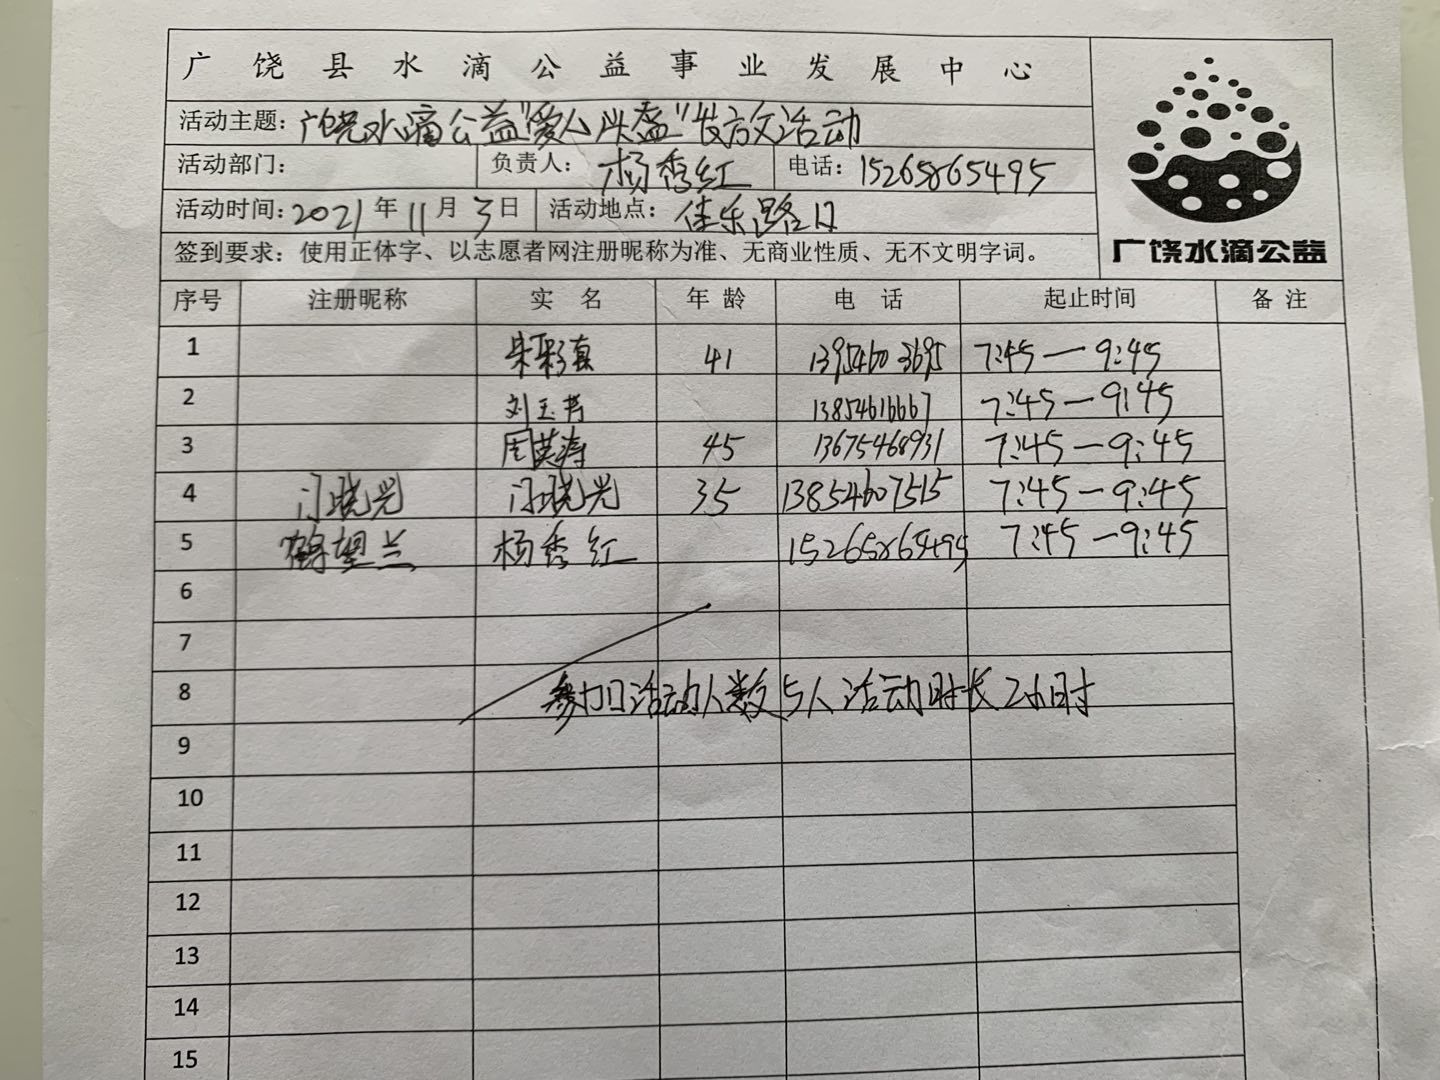 广饶县水滴公益事业发展中心
活动主题：广饶水滴公益"爱心头盔"发放活动
活动部门： 负责人：杨秀红 电话：15265865495
活动时间：2021年11月3日 活动地点：佳乐路口
签到要求：使用正体字、以志愿者网注册昵称为准、无商业性质、无不文明字词。
广饶水滴公益
序号 注册昵称 实名 年龄 电话 起止时间 备注
1 朱彩真 41 13954603695 7:45—9:45
2 刘玉书 13854616667 7:45—9:45
3 周英涛 45 13675468931 7:45—9:45
4 门晓光 门晓光 35 13854607515 7:45—9:45
5 鹤望兰 杨秀红 15265865495 7:45—9:45
6
7
8 参加活动人数5人活动时长2小时
9
10
11
12
13
14
15